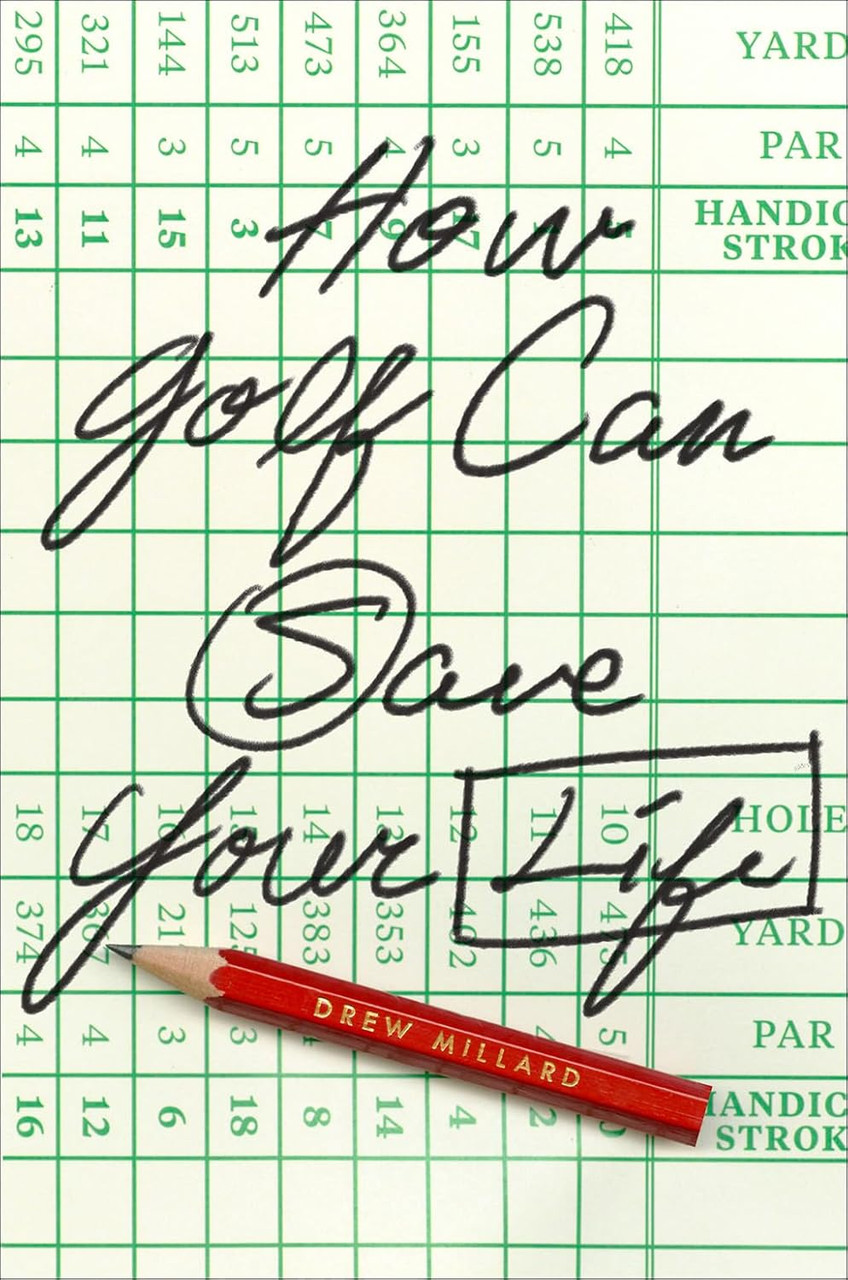 295 321 144 513 473 364 155 538 418 YARD
4 4 3 5 5 4 3 5 4 PAR
13 11 15 3 7 9 17 HANDIC
STROK
How
Golf Can
Save
Your Life
18 17 16 15 14 13 12 11 10 HOLE
374 367 125 383 353 402 436 475 YARD
4 4 3 3 5 PAR
16 12 6 18 8 14 4 2 HANDIC
STROK
DREW MILLARD